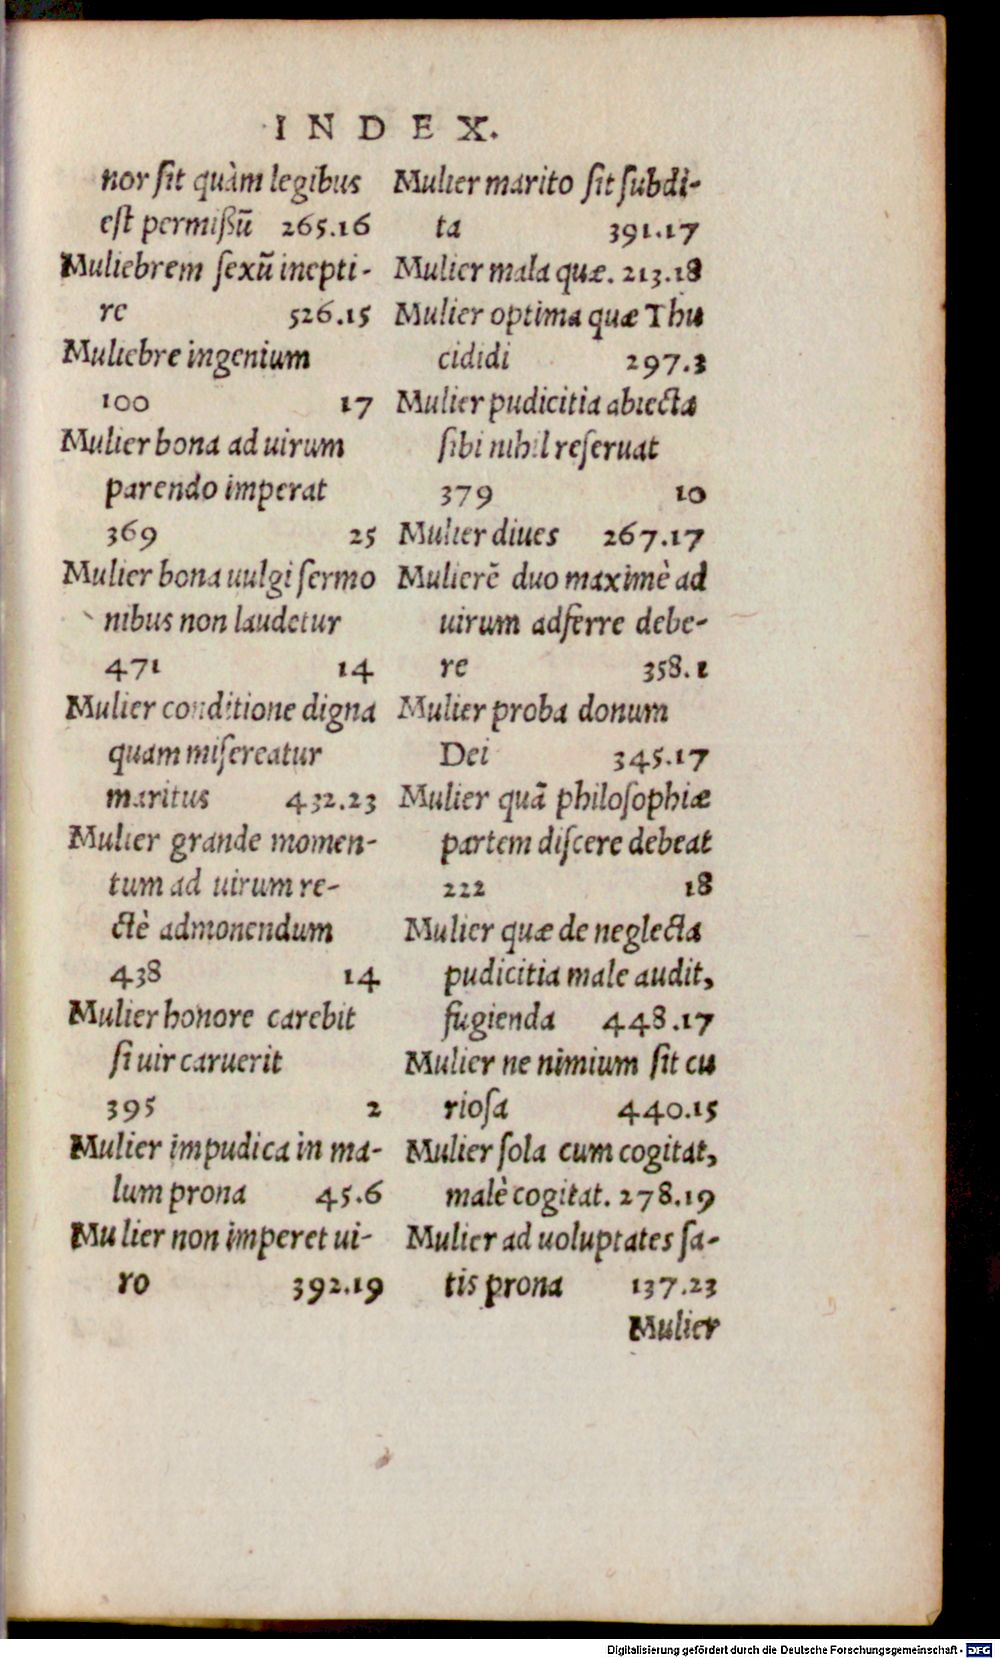 INDEX.
nor sit quàm legibus
est permißũ 265.16
Muliebrem sexũ inepti-
re 526.15
Muliebre ingenium
100 17
Mulier bona ad uirum
parendo imperat
369 25
Mulier bona uulgi sermo
nibus non laudetur
471 14
Mulier conditione digna
quam misereatur
maritus 432.23
Mulier grande momen-
tum ad uirum re-
ctè admonendum
438 14
Mulier honore carebit
si uir caruerit
395 2
Mulier impudica in ma-
lum prona 45.6
Mulier non imperet ui-
ro 392.19
Mulier marito sit subdi-
ta 391.17
Mulier mala quæ. 213.18
Mulier optima quæ Thu
cididi 297.3
Mulier pudicitia abiecta
sibi nihil reseruat
379 10
Mulier diues 267.17
Mulierẽ duo maximè ad
uirum adferre debe-
re 358.1
Mulier proba donum
Dei 345.17
Mulier quã philosophiæ
partem discere debeat
222 18
Mulier quæ de neglecta
pudicitia male audit,
fugienda 448.17
Mulier ne nimium sit cu
riosa 440.15
Mulier sola cum cogitat,
malè cogitat. 278.19
Mulier ad uoluptates sa-
tis prona 137.23
Mulier
Digitalisierung gefördert durch die Deutsche Forschungsgemeinschaft - DFG